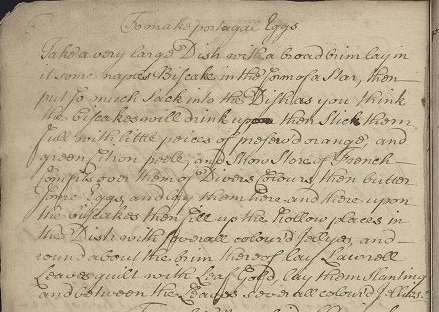 To make portugal Eggs
Take a very large Dish with a broad brim lay in
it some naples Biscake in the form of a Star, then
put so much Sack into the Dish as you think
the biscakes will drink up then Stick them
full with little peices of preserv'd orange, and
green Citron peele, and Strow Store of French
Comfits over them of Divers Colours then butter
some Eggs, and lay them here and there upon
the biscakes then fill up the hollow places in
the Dish with severall colour'd Jellyes, and
round about the brim thereof lay Lawrell
Leaves guilt with Leaf Gould, lay them Slanting
and between the Leaves severall colour'd Jellies.